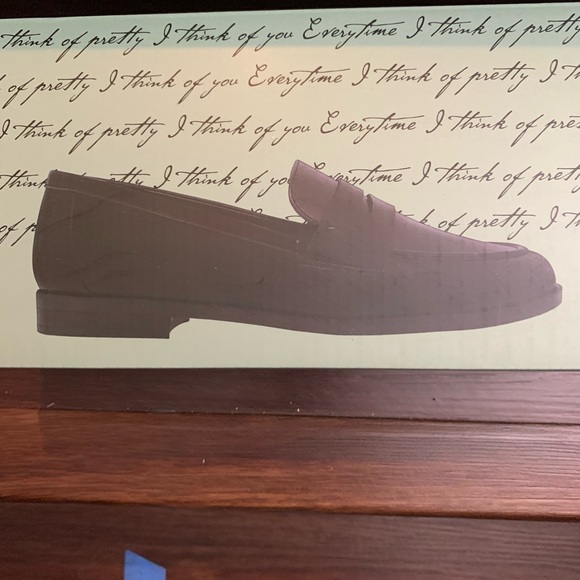 think of pretty I think of you Everytime I think of pretty I think
of pretty I think of you Everytime I think of pretty I
I think of pretty I think of you Everytime I think of pres
think I think of you Everytime I think of pretty
of I think of pretty I